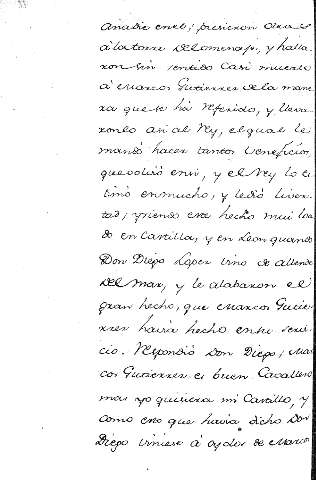 á la torre del omenaje, y halla-
ron sin sentido casi muerto
á Marcos Gutierrez de la mane-
ra que se há referido, y lleva-
ronlo asi al Rey, el qual le
mandó hacer tantos beneficios
que volvió en si, y el Rey lo es
timó en mucho, y le dió liver-
tad; y siendo este hecho mui loa-
do en Castilla, y en Leon quando
Don Diego Lopez vino de allende
del mar, y le alabaron el
gran hecho, que Marcos Gutie-
rrez havia hecho en su servi-
cio. Respondió Don Diego; Mar-
cos Gutierrez es buen Cavallero
mas yo quisiera mi Castillo, y
como esto que havia dicho Don
Diego viniese á oydos de Marcos